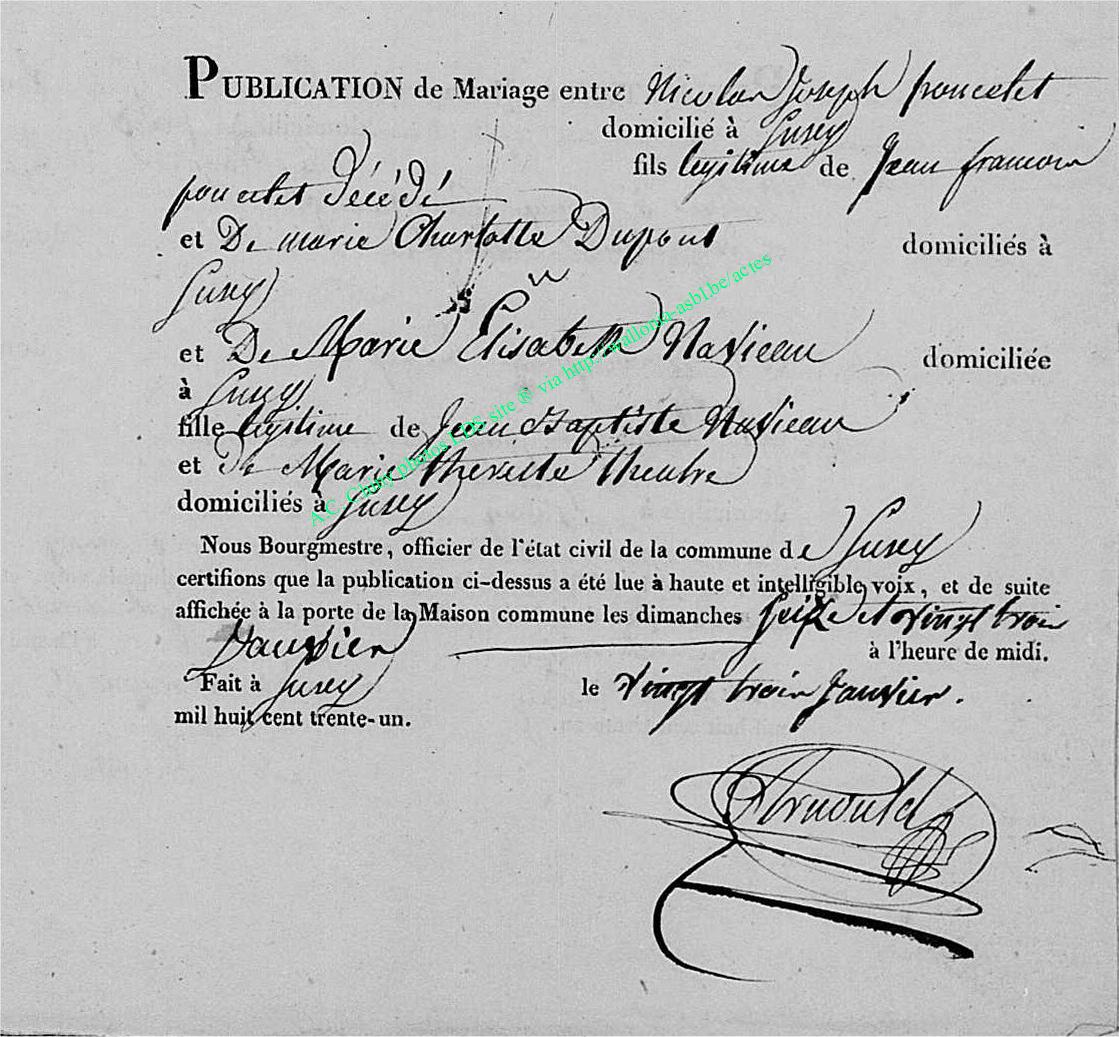 PUBLICATION de Mariage entre Nicolas Joseph poncelet
domicilié à Jusey
fils legitime de Jean francois
poncelet décédé
et De marie Charlotte Dupont domiciliés à
Jusey
et De Marie Elisabeth Navieau domiciliée
à Jusey
fille legitime de Jean Baptiste Navieau
et de Marie theresse
domiciliés à Jusey
Nous Bourgmestre, officier de l'état civil de la commune de Jusey
certifions que la publication ci-dessus a été lue à haute et intelligible voix, et de suite
affichée à la porte de la Maison commune les dimanches seize et vingt trois
Janvier à l'heure de midi.
Fait à Jusey le vingt trois Janvier.
mil huit cent trente-un.
Arnould
A.C. Chiny photos LDS site ® via http://wallonia-asbl.be/actes